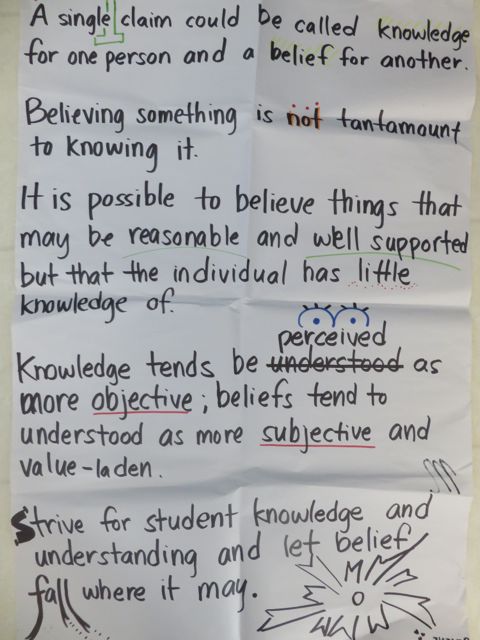 A single claim could be called knowledge
for one person and a belief for another.
Believing something is not tantamount
to knowing it.
It is possible to believe things that
may be reasonable and well supported
but that the individual has little
knowledge of.
perceived
Knowledge tends be understood as
more objective; beliefs tend to
understood as more subjective and
value-laden.
Strive for student knowledge and
understanding and let belief
fall where it may.